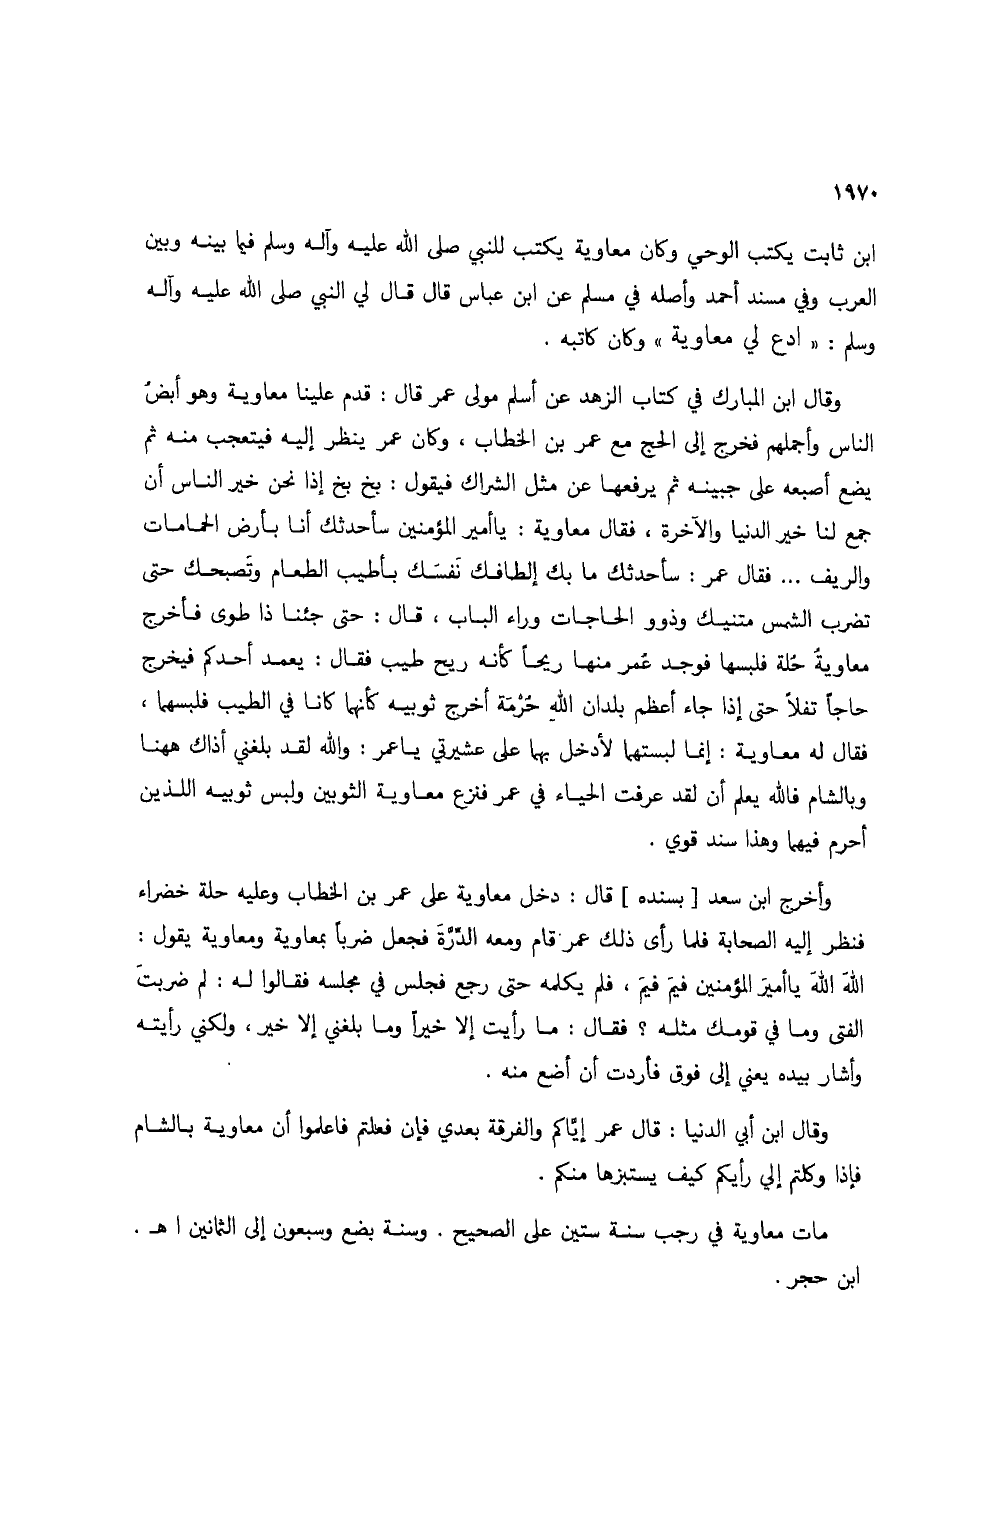 ١٩٧٠
ابن ثابت يكتب الوحي وكان معاوية يكتب للنبي صلى الله عليه وآله وسلم فيما بينه وبين
العرب وفي مسند أحمد وأصله في مسلم عن ابن عباس قال قال لي النبي صلى الله عليه وآله
وسلم : « ادع لي معاوية » وكان كاتبه .
وقال ابن المبارك في كتاب الزهد عن أسلم مولى عمر قال : قدم علينا معاوية وهو أبضُ
الناس وأجملهم فخرج إلى الحج مع عمر بن الخطاب ، وكان عمر ينظر إليه فيتعجب منه ثم
يضع أصبعه على جبينه ثم يرفعها عن مثل الشراك فيقول : بخ بخ إذا نحن خير الناس أن
جمع لنا خير الدنيا والآخرة ، فقال معاوية : ياأمير المؤمنين سأحدثك أنا بأرض الحمامات
والريف ... فقال عمر : سأحدثك ما بك إلطافك نَفسَك بأطيب الطعام وتَصبحك حتى
تضرب الشمس متنيك وذوو الحاجات وراء الباب ، قال : حتى جئنا ذا طوى فأخرج
معاويةُ حُلة فلبسها فوجد عُمر منها ريحاً كأنه ريح طيب فقال : يعمد أحدكم فيخرج
حاجاً تفلاً حتى إذا جاء أعظم بلدان اللهِ حُرْمَة أخرج ثوبيه كأنهما كانا في الطيب فلبسهما ،
فقال له معاوية : إنما لبستهما لأدخل بهما على عشيرتي ياعمر : والله لقد بلغني أذاك ههنا
وبالشام فالله يعلم أن لقد عرفت الحياء في عمر فنزع معاوية الثوبين ولبس ثوبيه اللذين
أحرم فيهما وهذا سند قوي .
وأخرج ابن سعد [ بسنده ] قال : دخل معاوية على عمر بن الخطاب وعليه حلة خضراء
فنظر إليه الصحابة فلما رأى ذلك عمر قام ومعه الدِّرَّةَ فجعل ضرباً بمعاوية ومعاوية يقول :
اللهَ اللهَ ياأميرَ المؤمنين فيمَ فيمَ ، فلم يكلمه حتى رجع فجلس في مجلسه فقالوا له : لم ضربتَ
الفتى وما في قومك مثله ؟ فقال : ما رأيت إلا خيراً وما بلغني إلا خير ، ولكني رأيته
وأشار بيده يعني إلى فوق فأردت أن أضع منه .
وقال ابن أبي الدنيا : قال عمر إيَّاكم والفرقة بعدي فإن فعلتم فاعلموا أن معاوية بالشام
فإذا وكلتم إلي رأيكم كيف يستبزها منكم .
مات معاوية في رجب سنة ستين على الصحيح . وسنة بضع وسبعون إلى الثمانين ا هـ .
ابن حجر .